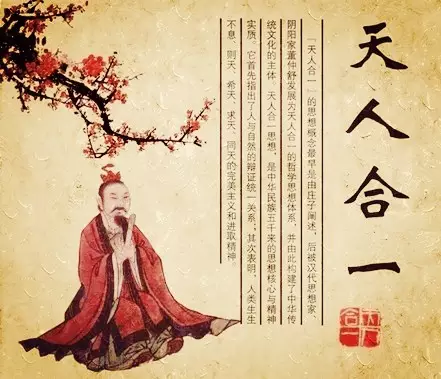 天人合一
天人
合一
「天人合一」的思想概念最早是由庄子阐述，后被汉代思想家、
阴阳家董仲舒发展为天人合一的哲学思想体系，并由此构建了中华传
统文化的主体。天人合一思想，是中华民族五千来的思想核心与精神
实质。它首先指出了人与自然的辩证统一关系；其次表明，人类生生
不息、则天、希天、求天、同天的完美主义和进取精神。